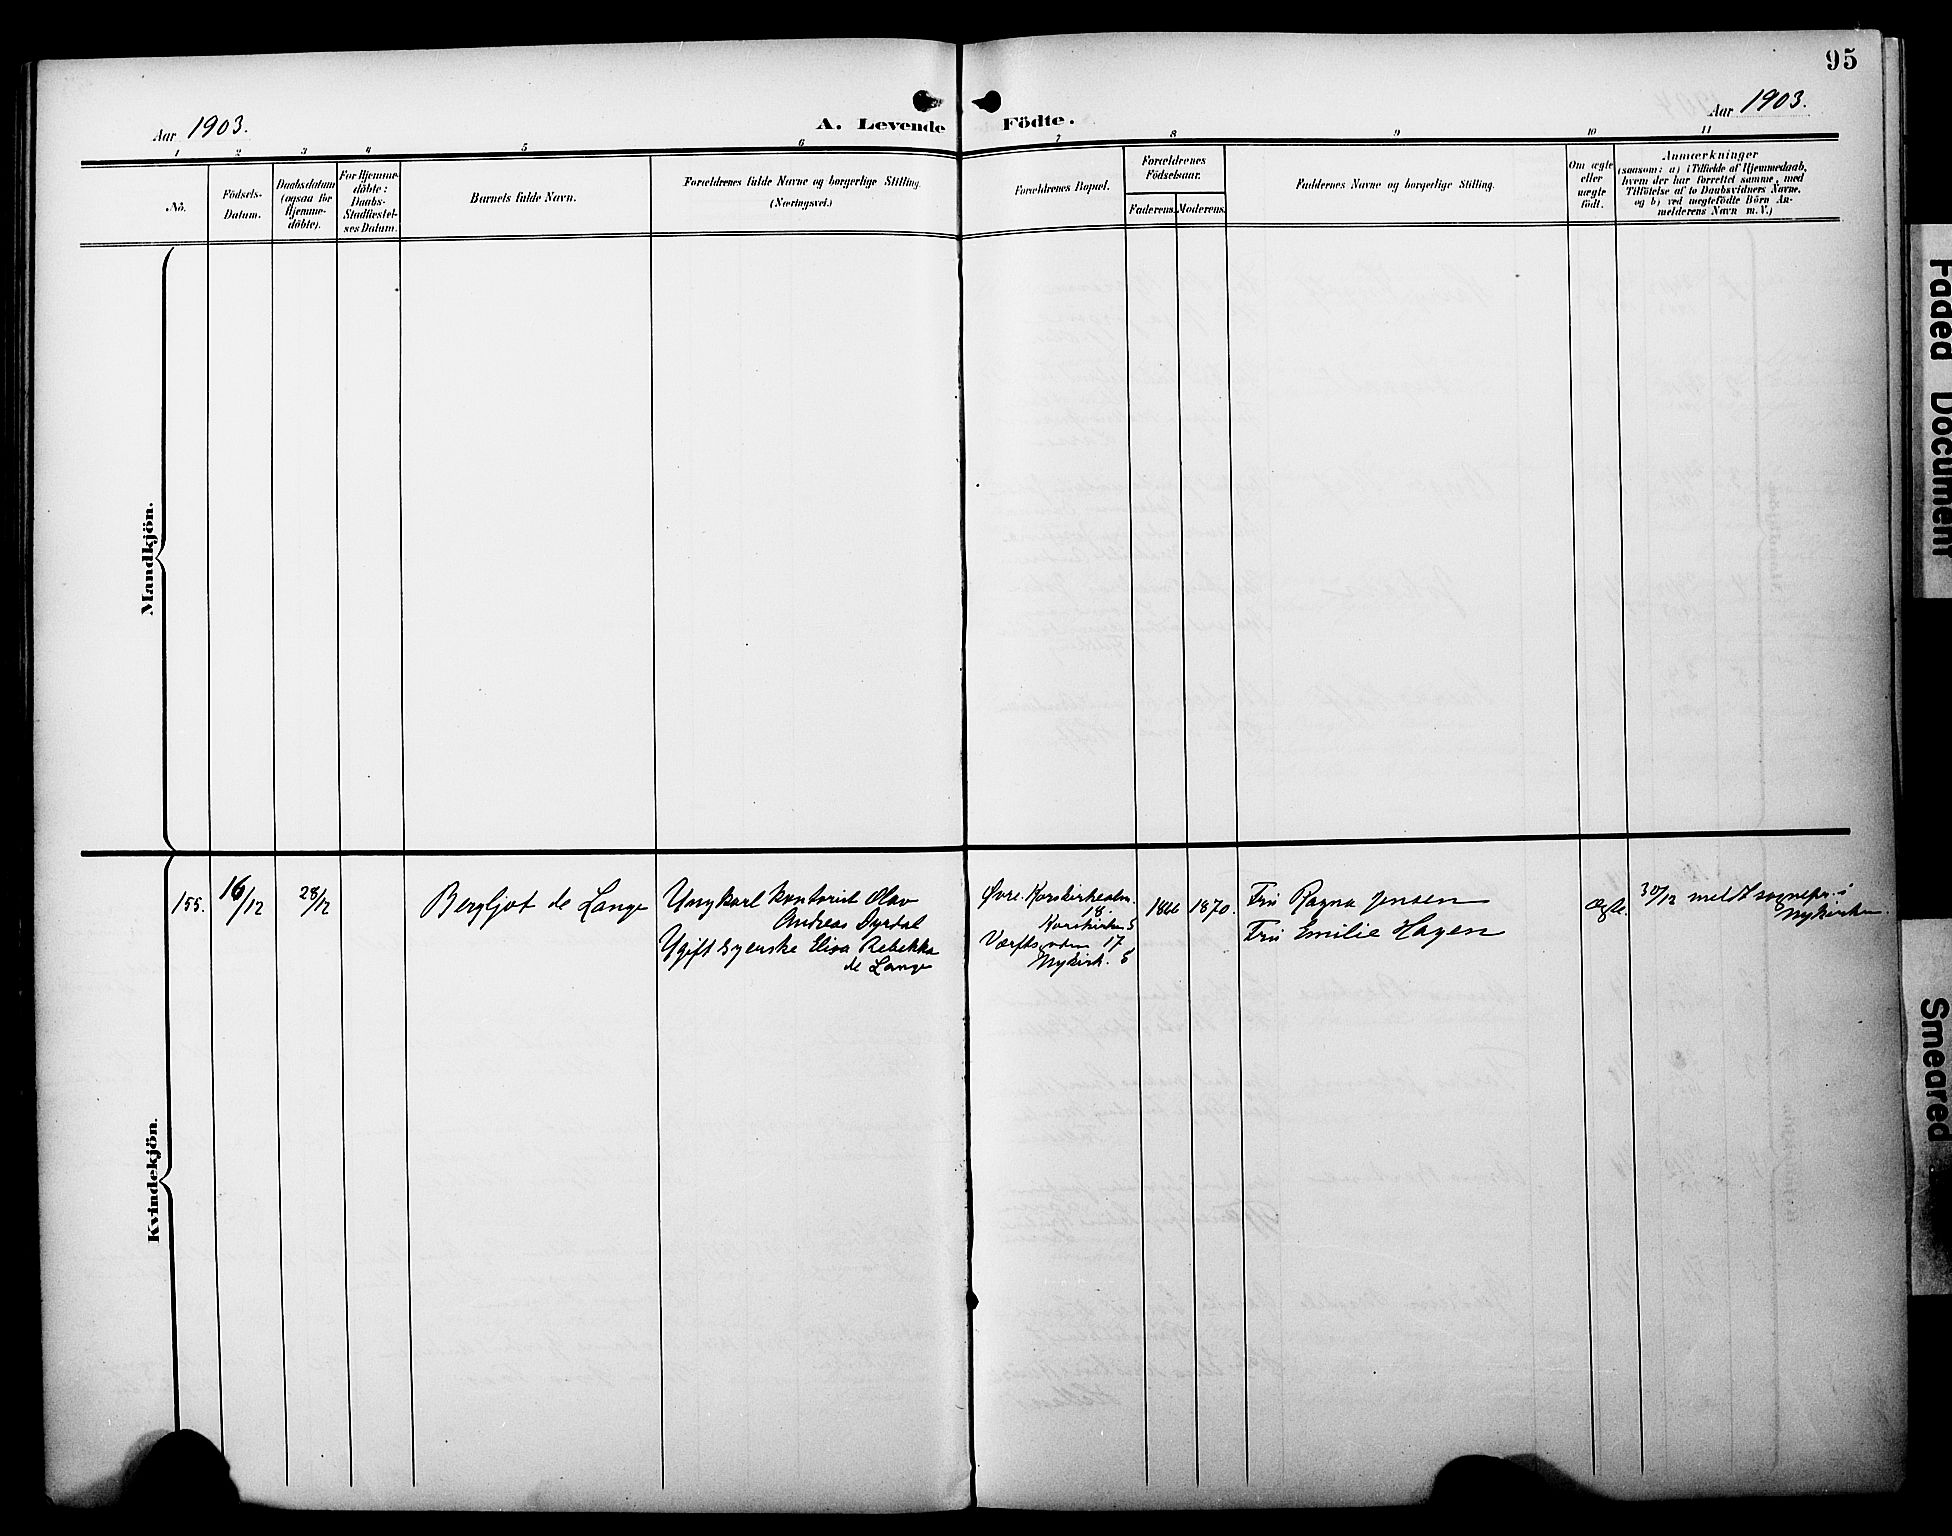 95
Aar 1903.
A. Levende Födte.
Aar 1903.
1 2 3 4 5 6 7 8 9 10 11
No.
Födsels-
Datum.
Daabsdatum
(ogsaa for
Hjemme-
döbte).
For Hjemme-
döbte:
Daabs-
Stadfæstel-
ses Datum.
Barnets fulde Navn.
Forældrenes fulde Navne og borgerlige Stilling.
(Næringsvei.)
Forældrenes Bopæl.
Forældrenes
Födselsaar.
Faderens. Moderens.
Faddernes Navne og borgerlige Stilling.
Om ægte
eller
uægte
födt.
Anmærkninger
(saasom: a) i Tilfælde af Hjemmedaab,
hvem der har forrettet samme, med
Tilföielse af to Daabsvidners Navne.
og b) ved uægtefödte Börn An-
melderens Navn m. V.)
Mandkjön.
Kvindekjön.
155.
16/12
28/12
Bergljot de Lange
Ungkarl kontorist Olav
Andreas Dyrdal
Ugift syerske Elisa Rebekka
de Lange
Øvre. Korskirkealm.
18.
Korskirken S
Værfts 17
Nykirk. S
1866
1870.
Fru Ragna Jensen
Fru Emilie Hagen
Ægte.
30/12 meldt sognepr. i
Nykirken.
Faded Document
Smeared